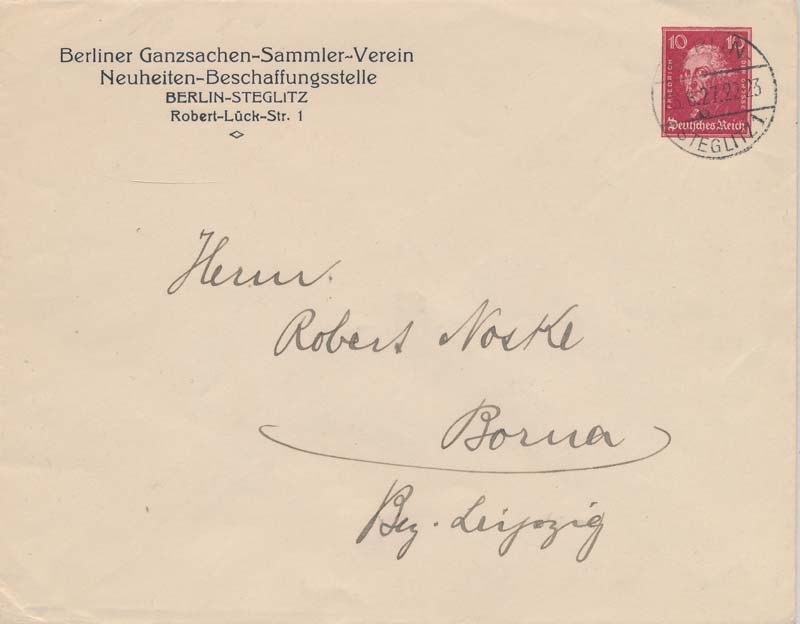 Berliner Ganzsachen-Sammler-Verein
Neuheiten-Beschaffungsstelle
BERLIN-STEGLITZ
Robert-Lück-Str. 1
10
FRIEDRICH
Deutsches Reich
STEGLITZ 1
Herrn
Robert Noske
Borna
Bez. Leipzig